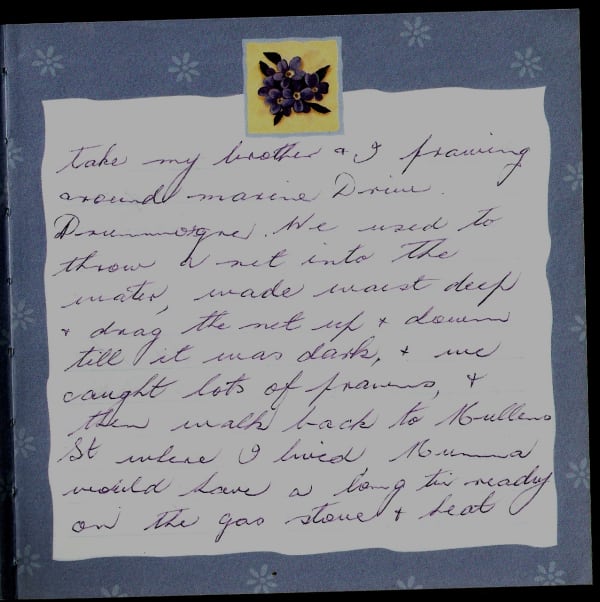 take my brother & I prawning
around marine Drive
Drummoyne. We used to
throw a net into the
water, wade waist deep
& drag the net up & down
till it was dark, & we
caught lots of prawns, &
then walk back to Mullens
St where I lived Mumma
would have a long tin ready
on the gas stove & heat